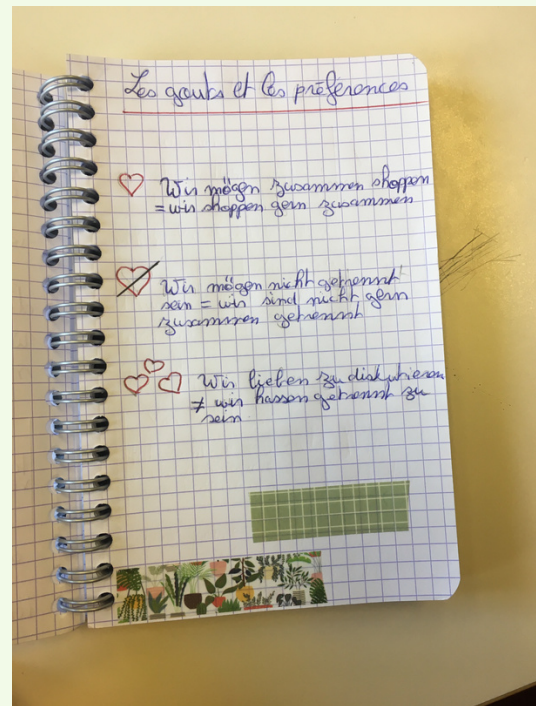 Les gouts et les préférences
Wir mögen zusammen shoppen
= wir shoppen gern zusammen
Wir mögen nicht getrennt
sein = wir sind nicht gern
zusammen getrennt
Wir lieben zu diskutieren
≠ wir hassen getrennt zu
sein